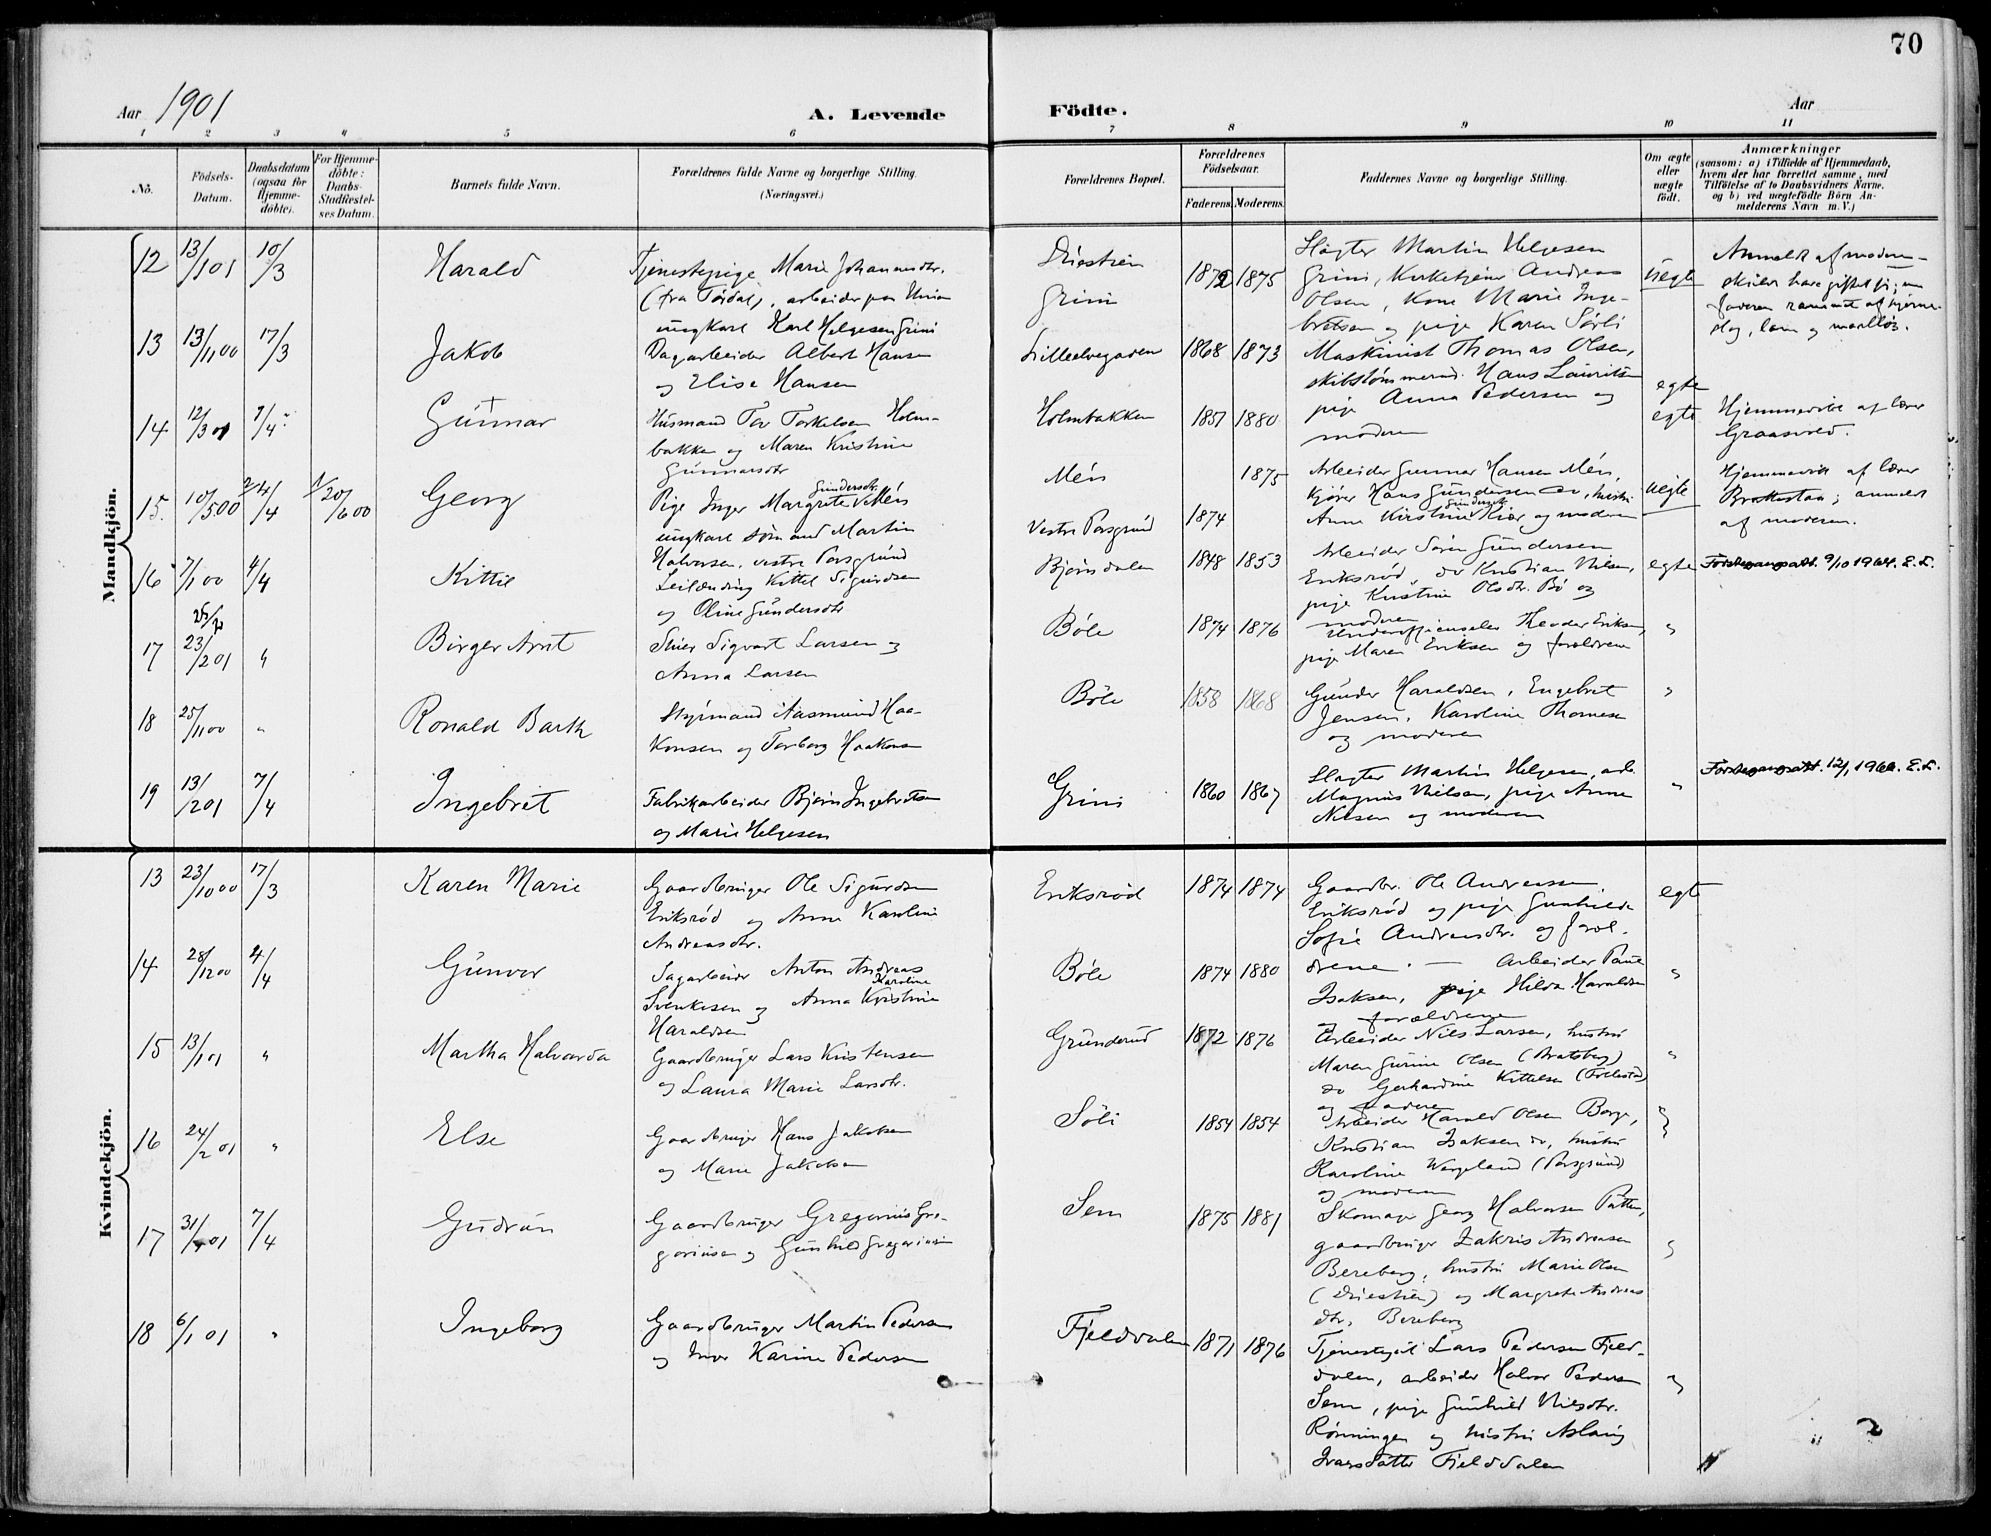 70
Aar 1901
A. Levende Födte.
Aar
1 2 3 4 5 6 7 8 9 10 11
No.
Födsels-Datum.
Daabsdatum (ogsaa for Hjemme-döbte).
For Hjemme-döbte: Daabs-Stadfæstel-ses Datum.
Barnets fulde Navn.
Forældrenes fulde Navne og borgerlige Stilling.
(Næringsvei.)
Forældrenes Bopæl.
Forældrenes Födselsaar.
Faderens. Moderens.
Faddernes Navne og borgerlige Stilling.
Om ægte eller uægte födt.
Anmærkninger
(saasom: a) i Tilfælde af Hjemmedaab,
hvem der har forrettet samme, med
Tilföielse af to Daabsvidners Navne.
og b) ved uægtefödte Börn An-
melderens Navn m. V.)
Mandkjön.
12 13/1 01 10/3 Harald
Tjenestepige Marie Johannesdtr.
(fra Tørdal), arbeider paa Union
ungkarl Karl Helgesen Grini
Grini
1872 1875
Slagter Martin Helgesen
Grini, Kirketjener Andreas
Olsen, Kone Marie Inge-
bretsen og pige Karen Sørli
uegte
13 13/11 00 17/3 Jakob
Dagarbeider Albert Hansen
og Elise Hansen
Lilleelvegaden
1868 1873
Maskinist Thomas Olsen,
skibstømmermd. Hans Lauritsen
pige Anna Pedersen og
moderen
egte
14 12/3 01 7/4 Gunnar
Husmand Tov Torkelsen Holm-
bakken og Maren Kristine
Gunnarsdtr
Holmbakken
1857 1880
egte
Hjemmedøbt af lærer
Graasved.
15. 10/5 00 4/4 20/6 00 Georg
Pige Inger Margrete Gundersdtr. Méen
ungkarl sømand Martin
Halvorsen, vestre Porsgrund
Méen
Vestre Porsgrund
1874 1875
Arbeider Gunnar Hansen Méen
kjører Hans Gundersen do, hustru
Anne Kirstine Gundersdtr. Kjær og moderen
uegte
Hjemmedøbt af lærer
Brekkestøa; anmeldt
af moderen.
16 7/1 00 4/4 Kittil
Leilænding Kittel Sigurdsen
og Oline Gundersdtr
Bjørndalen
1848 1853
Arbeider Søren Gundersen
Eriksrød, do Kristian Nilsen,
pige Kirstine Olsdtr. Bø og
moderen
egte
Forstegangsatt. 9/10 1964. E.L.
17 23/2 01 " Birger Arnt
Skier Sigvart Larsen og
Anna Larsen
Bøle
1874 1876
Underofficerselev Theodor Eriksen,
pige Maren Eriksen og forældrene
"
18 25/11 00 " Ronald Barth
Styrmand Aasmund Haa-
konsen og Torborg Haakonsen
Bøle
1858 1868
Gunder Haraldsen, Engebret
Jensen, Karoline Thomesen
og moderen
"
19 13/2 01 7/4 Ingebret
Fabrikarbeider Bjørn Ingebretsen
og Marie Helgesen
Grini
1860 1867
Slagter Martin Helgesen, arb.
Magnus Nielsen, pige Anne
Nilsen og moderen
"
Kvindekjön.
13 23/10 00 17/3 Karen Marie
Gaardbruger Ole Sigurdsen
Eriksrød og Anne Karoline
Andreasdtr.
Eriksrød
1874 1874
Gaardbr. Ole Andreassen
Eriksrød og pige Gunhilde
Sofie Andreasdtr. og foræl-
drene.
egte
14 28/12 00 4/4 Gunvor
Sagarbeider Anton Andreas
Svenkesen og Anna Karoline Kristine
Haraldsen
Bøle
1874 1880
Arbeider Paul
Isaksen, pige Hilda Haraldsen
forældrene
"
15 13/1 01 " Martha Halvarda
Gaardbruger Lars Kristensen
og Laura Marie Larsdtr.
Gründerud
1872 1876
Arbeider Nils Larsen, hustru
Maren Gurine Olsen (Bratsberg)
do Gerhardine Kittelsen (Follestad)
og faderen
"
16 24/2 01 " Else
Gaardbruger Hans Jakobsen
og Marie Jakobsen
Søli
1854 1854
Arbeider Harald Olsen Borge,
Kristian Isaksen do, hustru
Karoline Wergeland (Porsgrund)
og moderen
"
17 31/1 01 7/4 Gudrun
Gaardbruger Gregorius Gre-
goriusen og Gunhild Gregoriusen
Sem
1875 1881
Skomager Georg Halvorsen Patten,
gaardbruger Zakris Andreasen
Bereberg, hustru Marie Olsen
og Margrete Andreas
dtr. Bereberg
"
18 6/1 01 " Ingeborg
Gaardbruger Martin Pedersen
og Inger Karine Pedersen
Fjelddalen
1871 1876
Tjenestegut Lars Pedersen Fjeld-
dalen, arbeider Halvor Pedersen
Sem, pige Gunhild Nilsdtr.
Rønningen og hustru Aslaug
Ivarsdatter Fjelddalen
"